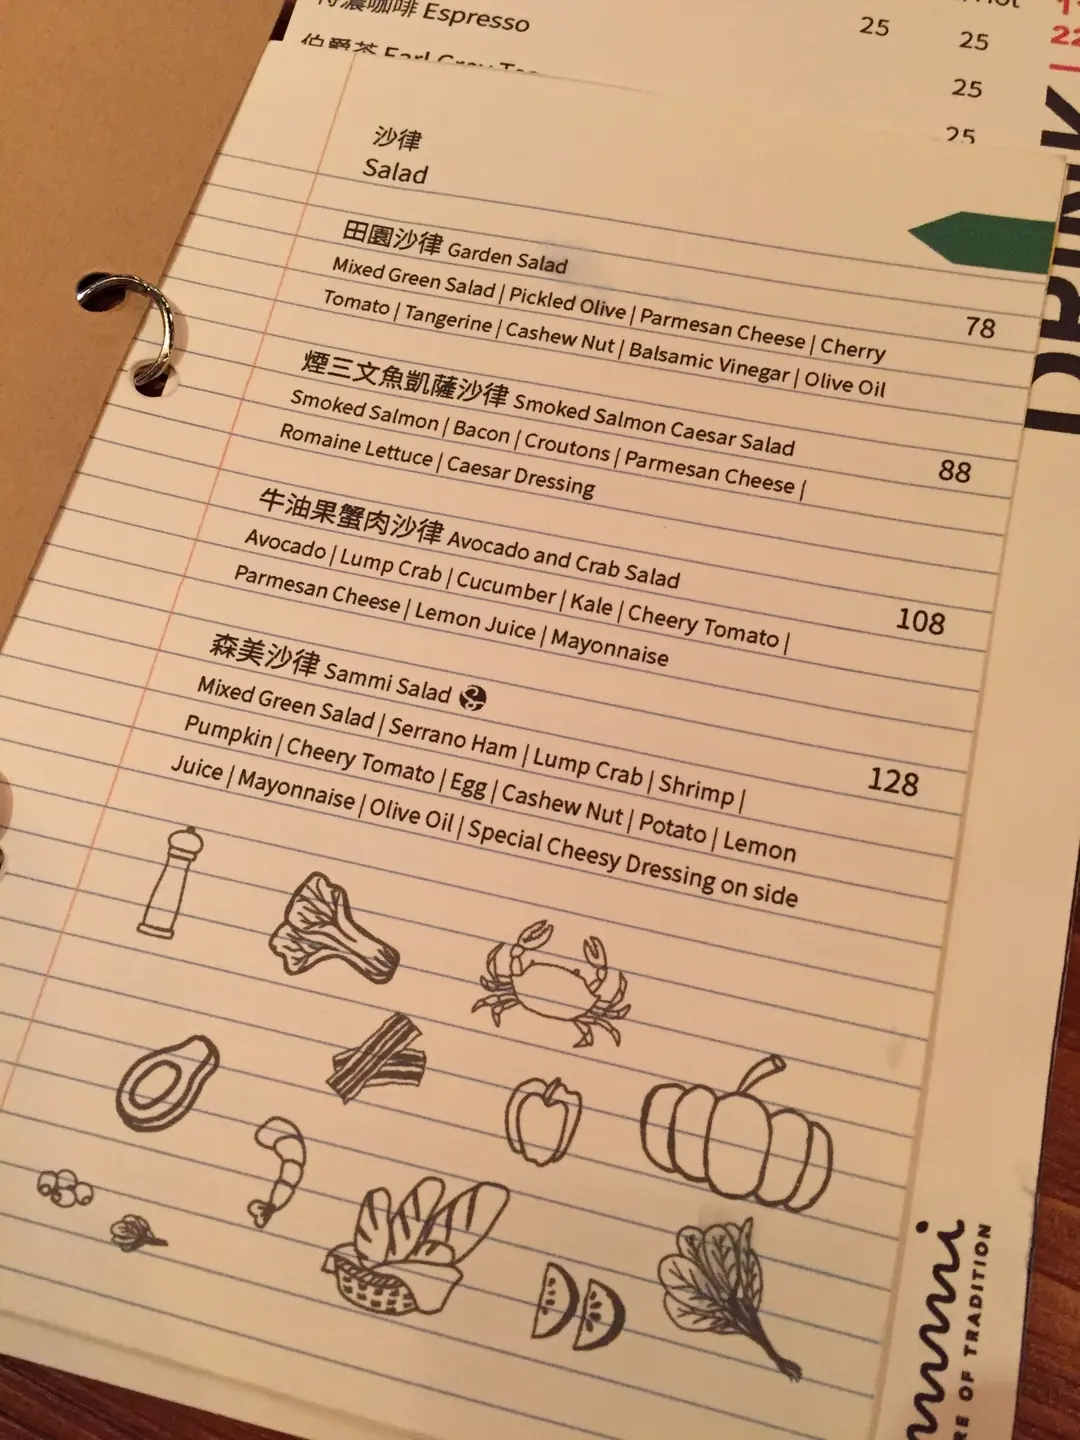 咖啡 Espresso 25 25
伯爵茶 Earl Grey Tea 25
25
DRINK
沙律
Salad
田園沙律 Garden Salad
Mixed Green Salad | Pickled Olive | Parmesan Cheese | Cherry 78
Tomato | Tangerine | Cashew Nut | Balsamic Vinegar | Olive Oil
煙三文魚凱薩沙律 Smoked Salmon Caesar Salad
Smoked Salmon | Bacon | Croutons | Parmesan Cheese | 88
Romaine Lettuce | Caesar Dressing
牛油果蟹肉沙律 Avocado and Crab Salad
Avocado | Lump Crab | Cucumber | Kale | Cheery Tomato | 108
Parmesan Cheese | Lemon Juice | Mayonnaise
森美沙律 Sammi Salad
Mixed Green Salad | Serrano Ham | Lump Crab | Shrimp | 128
Pumpkin | Cheery Tomato | Egg | Cashew Nut | Potato | Lemon
Juice | Mayonnaise | Olive Oil | Special Cheesy Dressing on side
OF TRADITION